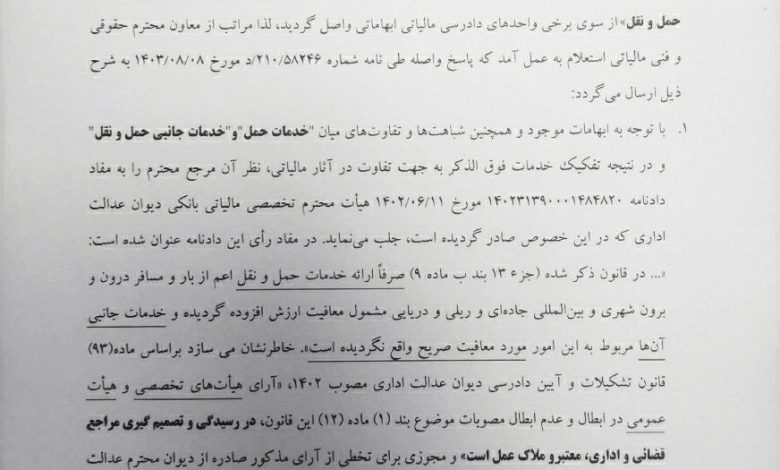 حمل و نقل» از سوی برخی واحدهای دادرسی مالیاتی ابهاماتی واصل گردید، لذا مراتب از معاون محترم حقوقی
و فنی مالیاتی استعلام به عمل آمد که پاسخ واصله طی نامه شماره ۲۱۰/۵۸۲۴۶/د مورخ ۱۴۰۳/۰۸/۰۸ به شرح
ذیل ارسال می‌گردد:
۱. با توجه به ابهامات موجود و همچنین شباهت‌ها و تفاوت‌های میان "خدمات حمل"و"خدمات جانبی حمل و نقل"
و در نتیجه تفکیک خدمات فوق الذکر به جهت تفاوت در آثار مالیاتی، نظر آن مرجع محترم را به مفاد
دادنامه ۱۴۰۲۳۱۳۹۰۰۰۱۴۸۴۸۲۰ مورخ ۱۴۰۲/۰۶/۱۱ هیأت محترم تخصصی مالیاتی بانکی دیوان عدالت
اداری که در این خصوص صادر گردیده است، جلب می‌نماید. در مفاد رأی این دادنامه عنوان شده است:
«... در قانون ذکر شده (جزء ۱۳ بند ب ماده ۹) صرفاً ارائه خدمات حمل و نقل اعم از بار و مسافر درون و
برون شهری و بین‌المللی جاده‌ای و ریلی و دریایی مشمول معافیت ارزش افزوده گردیده و خدمات جانبی
آن‌ها مربوط به این امور مورد معافیت صریح واقع نگردیده است». خاطرنشان می سازد براساس ماده(۹۳)
قانون تشکیلات و آیین دادرسی دیوان عدالت اداری مصوب ۱۴۰۲، «آرای هیأت‌های تخصصی و هیأت
عمومی در ابطال و عدم ابطال مصوبات موضوع بند (۱) ماده (۱۲) این قانون، در رسیدگی و تصمیم گیری مراجع
قضائی و اداری، معتبرو ملاک عمل است» و مجوزی برای تخطی از آرای مذکور صادره از دیوان محترم عدالت